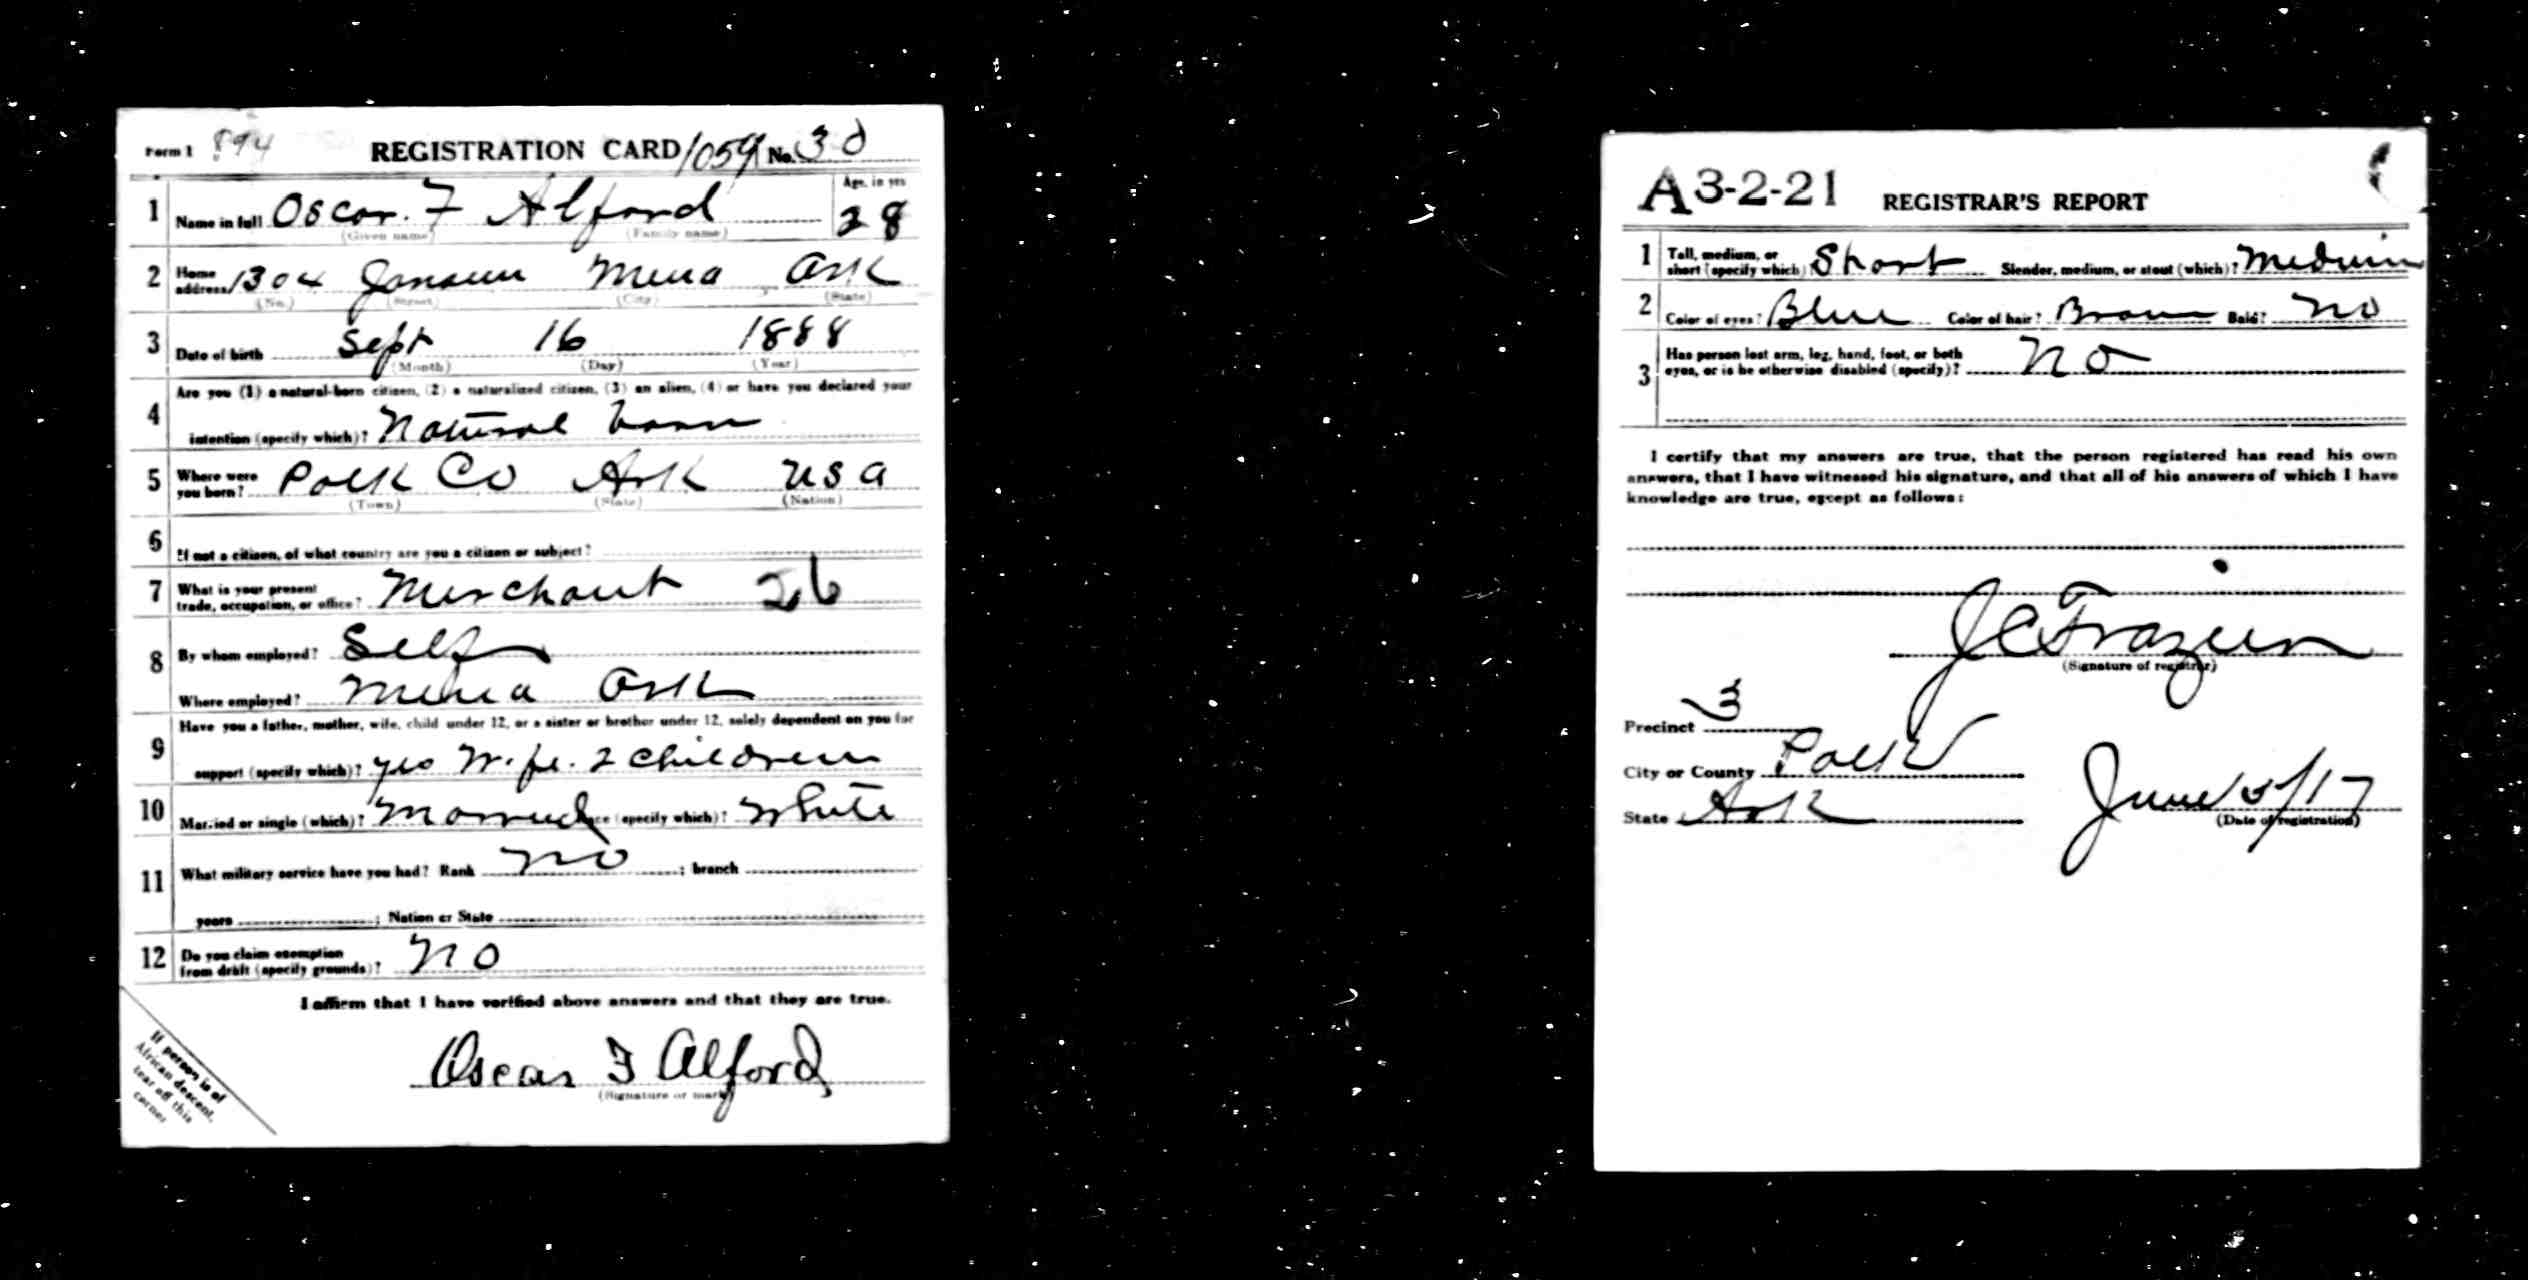 Form 1 894 REGISTRATION CARD 1059 No. 30
1 Name in full Oscar. F Alford Age, in yrs 28
(Given name) (Family name)
2 Home address 1304 Janssen Mena Ark
(No.) (Street) (City) (State)
3 Date of birth Sept 16 1888
(Month) (Day) (Year)
4 Are you (1) a natural-born citizen, (2) a naturalized citizen, (3) an alien, (4) or have you declared your
intention (specify which)? Natural born
5 Where were you born? Polk Co Ark USA
(Town) (State) (Nation)
6 If not a citizen, of what country are you a citizen or subject?
7 What is your present trade, occupation, or office? Merchant 26
8 By whom employed? Self
Where employed? Mena Ark
9 Have you a father, mother, wife, child under 12, or a sister or brother under 12, solely dependent on you for
support (specify which)? yes Wife. 2 children
10 Married or single (which)? Married Race (specify which)? White
11 What military service have you had? Rank no ; branch
years ; Nation or State
12 Do you claim exemption from draft (specify grounds)? No
I affirm that I have verified above answers and that they are true.
Oscar F Alford
(Signature or mark)
If person is of
African descent,
tear off this
corner
A3-2-21 REGISTRAR'S REPORT
1 Tall, medium, or short (specify which)? Short Slender, medium, or stout (which)? Medium
2 Color of eyes? Blue Color of hair? Brown Bald? No
3 Has person lost arm, leg, hand, foot, or both eyes, or is he otherwise disabled (specify)? No
I certify that my answers are true, that the person registered has read his own
answers, that I have witnessed his signature, and that all of his answers of which I have
knowledge are true, except as follows:
J C Frazier
(Signature of registrar)
Precinct 3
City or County Polk
State Ark June 5/17
(Date of registration)